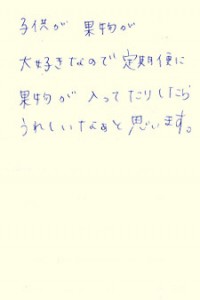 子供が 果物が
大好きなので 定期便に
果物が 入ってたりしたら
うれしいなぁと思います。